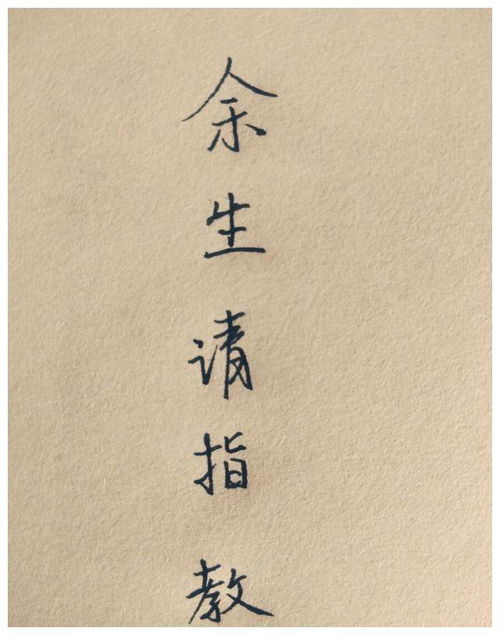 余生请指教